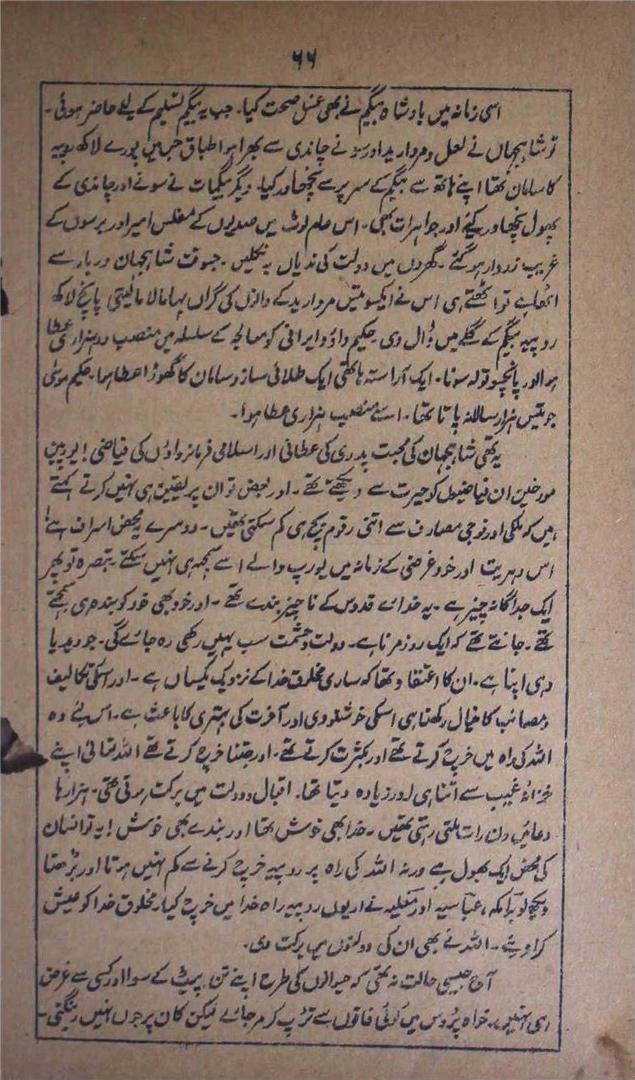 ۶۶
اسی زمانہ میں بادشاہ بیگم نے بھی غسل صحت کیا۔ جب یہ بیگم تسلیم کے لئے حاضر ہوئی۔
تو شاہجہاں نے لعل و مروارید اور سونے چاندی سے بھرا ہوا طباق جس میں پورے لاکھ روپیہ
کا سامان تھا اپنے ہاتھ سے بیگم کے سر پر سے نچھاور کیا۔ دیگر بیگمات نے سونے اور چاندی کے
پھول نچھاور کیئے اور جواہرات بھی۔ اس عام لوٹ میں صدیوں کے مفلس امیر اور برسوں کے
غریب زردار ہو گئے۔ گھروں میں دولت کی ندیاں بہ نکلیں۔ جسوقت شاہجہان دربار سے
اٹھا ہے تو اٹھتے ہی اس نے ایکسو تیس مروارید کے دانوں کی گراں بہا مالا مالیتی پانچ لاکھ
روپیہ بیگم کے گلے میں ڈال دی حکیم داؤد ایرانی کو معالجہ کے سلسلہ میں منصب دو ہزاری عطا
ہوا اور پانچسو تولہ سونا۔ ایک آراستہ ہاتھی ایک طلائی ساز و سامان کا گھوڑا عطا ہوا۔ حکیم مومنی
جو تیس ہزار سالانہ پاتا تھا۔ اسے منصب ہزاری عطا ہوا۔
یہ تھی شاہجہان کی محبت پدری کی عطائی اور اسلامی فرمانرواؤں کی فیاضی! یورپین
مورخین ان فیاضیوں کو حیرت سے دیکھتے تھے۔ اور بعض تو ان پر یقین ہی نہیں کرتے کہتے
ہیں کہ ملکی اور فوجی مصارف سے اتنی رقوم بچ ہی کم سکتی تھیں۔ دوسرے یہ محض اسراف ہے!
اس دہریت اور خود غرضی کے زمانہ میں یورپ والے اسے سمجھ ہی نہیں سکتے۔ تبصرہ تو پھر
ایک جداگانہ چیز ہے۔ یہ خدائے قدوس کے ناچیز بندے تھے۔ اور خود بھی خود کو بندہ ہی سمجھتے
تھے۔ جانتے تھے کہ ایک روز مرنا ہے۔ دولت و حشمت سب یہیں رکھی رہ جائے گی۔ جو دیدیا
وہی اپنا ہے۔ ان کا اعتقاد تھا کہ ساری مخلوق خدا کے نزدیک یکساں ہے۔ اور اسکی تکالیف
و مصائب کا خیال رکھنا ہی اسکی خوشنودی اور آخرت کی بہتری کا باعث ہے۔ اس لئے وہ
اللہ کی راہ میں خرچ کرتے تھے اور بکثرت کرتے تھے۔ اور جتنا خرچ کرتے تھے اللہ تعالیٰ اپنے
خزانۂ غیب سے اتنا ہی اور زیادہ دیتا تھا۔ اقبال و دولت میں برکت ہوتی تھی۔ ہزارہا
دعائیں دن رات ملتی رہتی تھیں۔ خدا بھی خوش تھا اور بندے بھی خوش! یہ تو انسان
کی محض ایک بھول ہے ورنہ اللہ کی راہ پر روپیہ خرچ کرنے سے کم نہیں ہوتا اور بڑھتا
دیکھو برامکہ، عباسیہ اور مغلیہ نے اربوں روپیہ راہ خدا میں خرچ کیا۔ مخلوق خدا کو عیش
کرا دیئے۔ اللہ نے بھی ان کی دولتوں میں برکت دی۔
آج جیسی حالت نہ تھی کہ حیوانوں کی طرح اپنے تن پیٹ کے سوا اور کسی سے غرض
ہی نہیں۔ خواہ پڑوس میں کوئی فاقوں سے تڑپ کر مر جائے لیکن کان پر جوں نہیں رینگتی۔